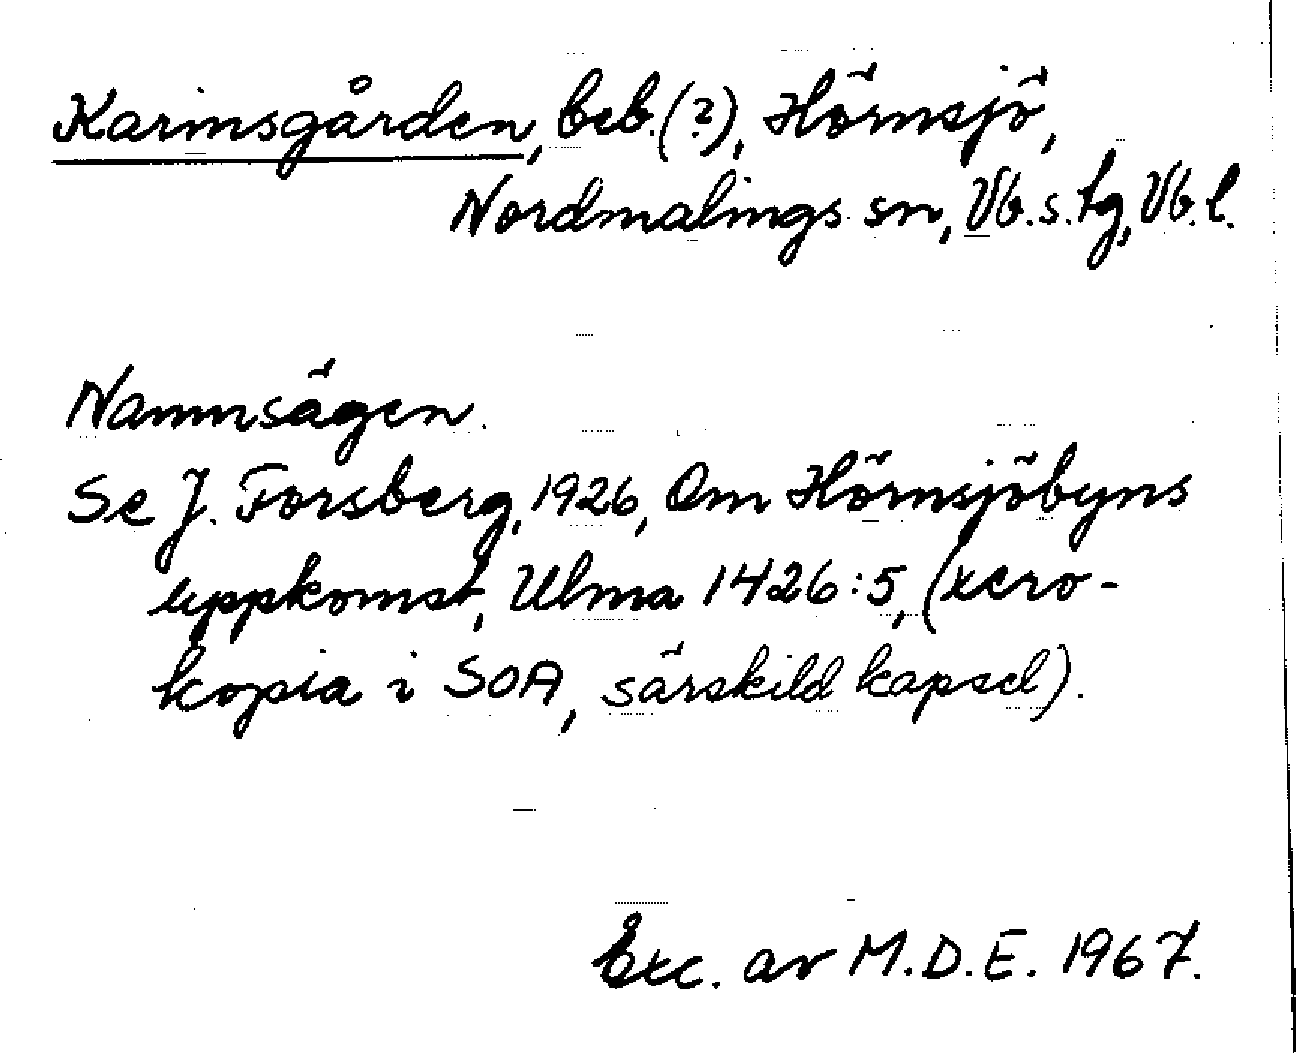 Karinsgården, beb.(?), Hörnsjö,
Nordmalings sn, Vb. s. tg, Vb. l.
Namnsägen.
Se J. Forsberg, 1926, Om Hörnsjöbyns
uppkomst, Ulma 1426:5, (xero-
kopia i SOA, särskild kapsel).
Exc. av M.D.E. 1967.